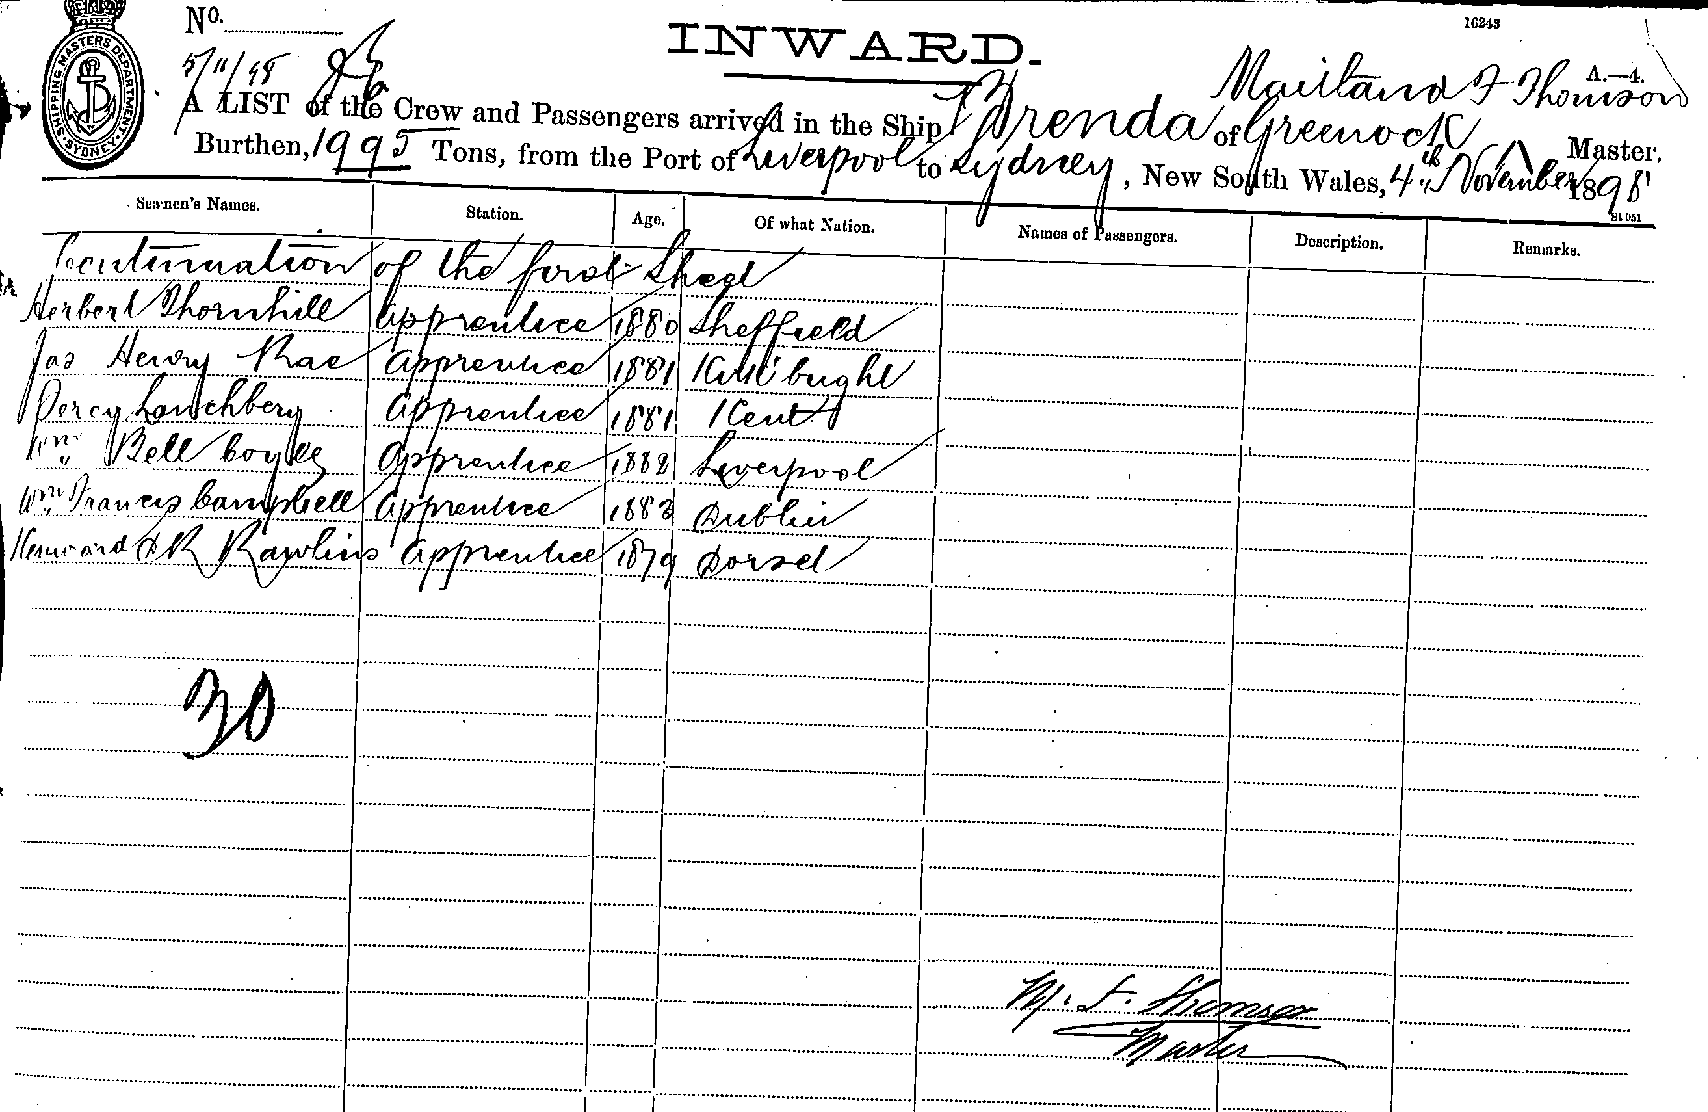 No.
INWARD.
16243
5/11/98
Maitland F Thomson
A.—4.
SHIPPING MASTERS DEPARTMENT. SYDNEY.
A LIST of the Crew and Passengers arrived in the Ship Brenda of Greenock
Master,
Burthen, 1995 Tons, from the Port of Liverpool to Sydney, New South Wales, 4th November 1898
Seamen's Names. Station. Age. Of what Nation. Names of Passengers. Description. Remarks.
Continuation of the first Sheet
Herbert Thornhill Apprentice 1880 Sheffield
Jas Henry Rae Apprentice 1881
Percy Apprentice 1881 Kent
Wm Bell Apprentice 1882 Liverpool
Wm Francis Campbell Apprentice 1883 Dublin
R Rawlins Apprentice 1879 Dorset
30
M. F. Thomson
Master